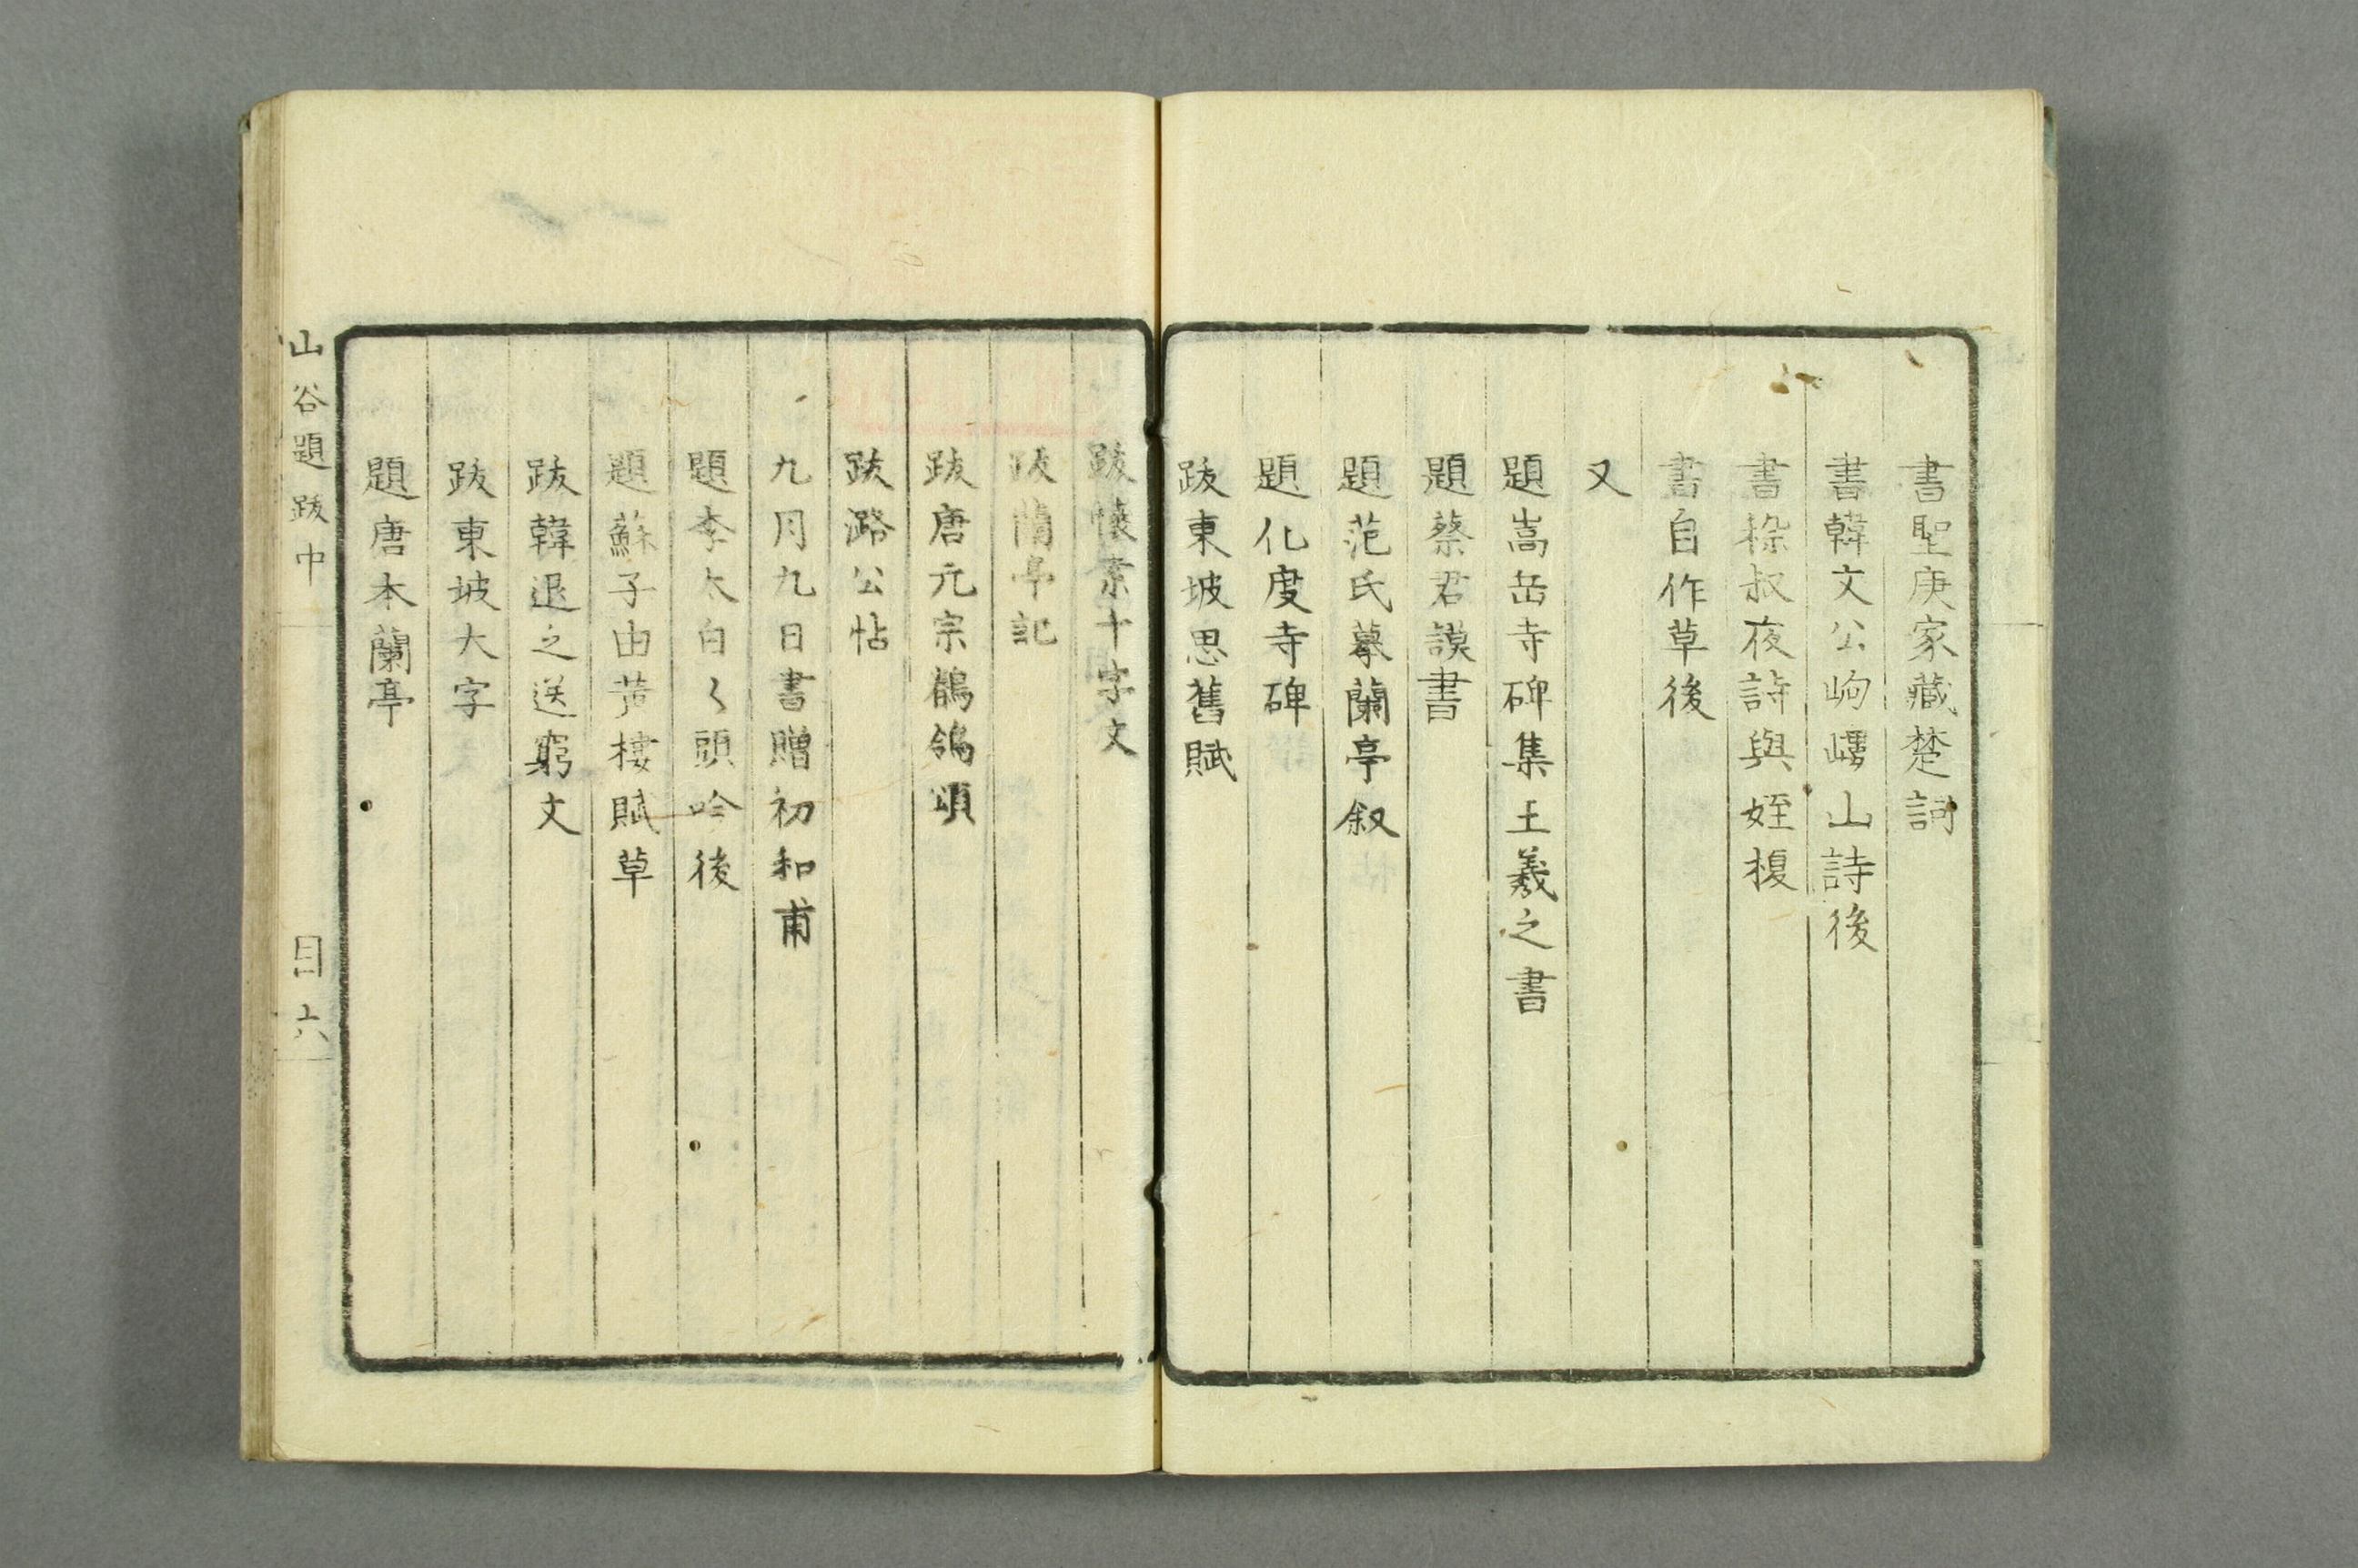 書聖庚家藏楚詞
書韓文公岣嶁山詩後
書嵇叔夜詩與姪榎
書自作草後
又
題嵩岳寺碑集王羲之書
題蔡君謨書
題范氏摹蘭亭叙
題化度寺碑
跋東坡思舊賦
跋懷素千字文
跋蘭亭記
跋唐元宗鶺鴒頌
跋潞公帖
九月九日書贈初和甫
題李太白〻頭吟後
題蘇子由黄樓賦草
跋韓退之送窮文
跋東坡大字
題唐本蘭亭
山谷題跋中
目六